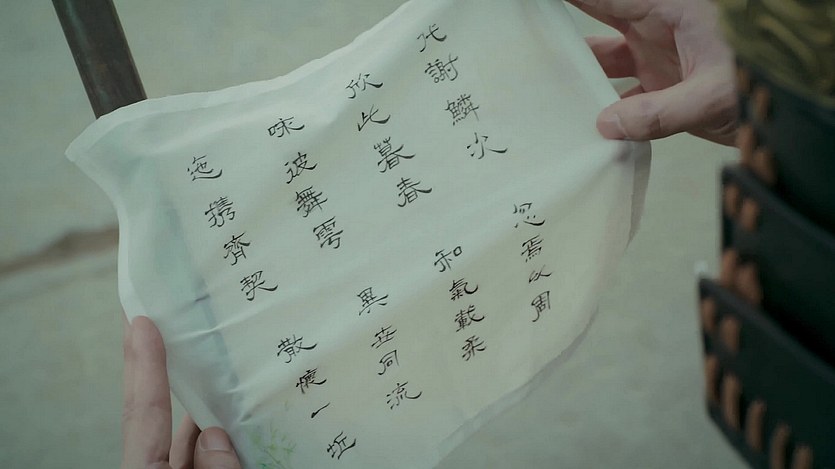 代謝鱗次 忽焉以周
欣此暮春 和氣載柔
咏彼舞雩 異世同流
迤携齊契 散懷一坵